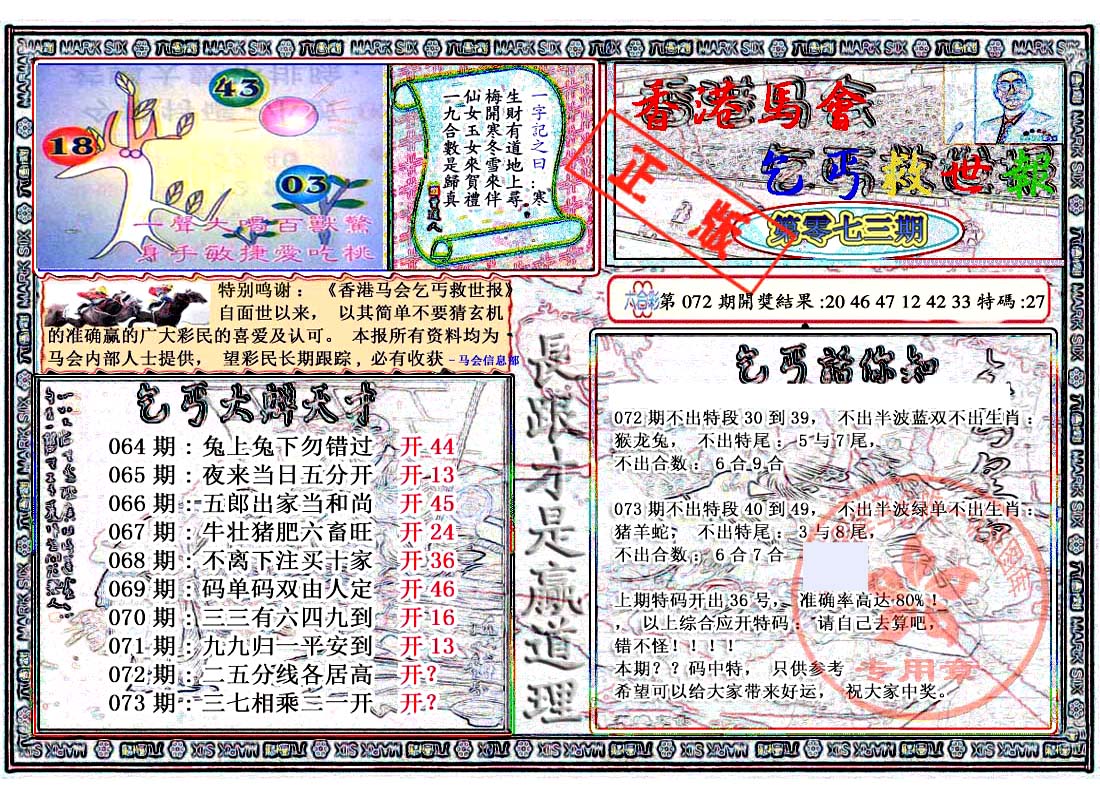 43
18
03
一聲大喝百獸驚
身手敏捷愛吃桃
一字記之曰：寒
生財有道地上尋
梅開寒冬雪來伴
仙女玉女來賀禮
一九合數是歸真
香港馬會
乞丐救世報
第零七三期
正版
特别鸣谢：《香港马会乞丐救世报》
自面世以来，以其简单不要猜玄机
的准确赢的广大彩民的喜爱及认可。本报所有资料均为
马会内部人士提供，望彩民长期跟踪,必有收获-马会信息部
六合彩 第 072 期開獎結果:20 46 47 12 42 33 特碼:27
乞丐大辩天才
064 期：兔上兔下勿错过 开 44
065 期：夜来当日五分开 开 13
066 期：五郎出家当和尚 开 45
067 期：牛壮猪肥六畜旺 开 24
068 期：不离下注买十家 开 36
069 期：码单码双由人定 开 46
070 期：三三有六四九到 开 16
071 期：九九归一平安到 开 13
072 期：二五分线各居高 开?
073 期：三七相乘三一开 开?
長跟才是贏道理
乞丐話你知
072 期不出特段 30 到 39，不出半波蓝双不出生肖：
猴龙兔，不出特尾：5 与 7 尾，
不出合数：6 合 9 合
073 期不出特段 40 到 49，不出半波绿单不出生肖：
猪羊蛇；不出特尾：3 与 8 尾，
不出合数：6 合 7 合
上期特码开出 36 号，准确率高达 80%！
，以上综合应开特码：请自己去算吧，
错不怪！！！！
本期？？码中特，只供参考
希望可以给大家带来好运，祝大家中奖。
专用章